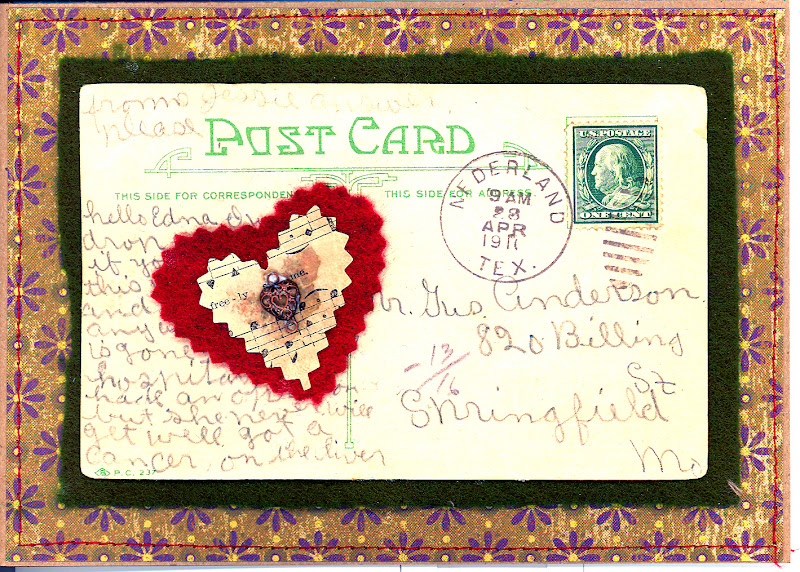 from Jessie answer
please
POST CARD
THIS SIDE FOR CORRESPONDEN
THIS SIDE FOR ADDRESS
U.S. POSTAGE
ONE CENT
NEDERLAND
9 AM
28
APR
1911
TEX.
hello Edna
drop
if yo
this
and
any
is gone
hospital
have an
but she never will
get well got a
cancer, on the liver
P.C. 237
free - ly
me.
r. Gus Anderson.
820 Billing
St
Springfield
Mo